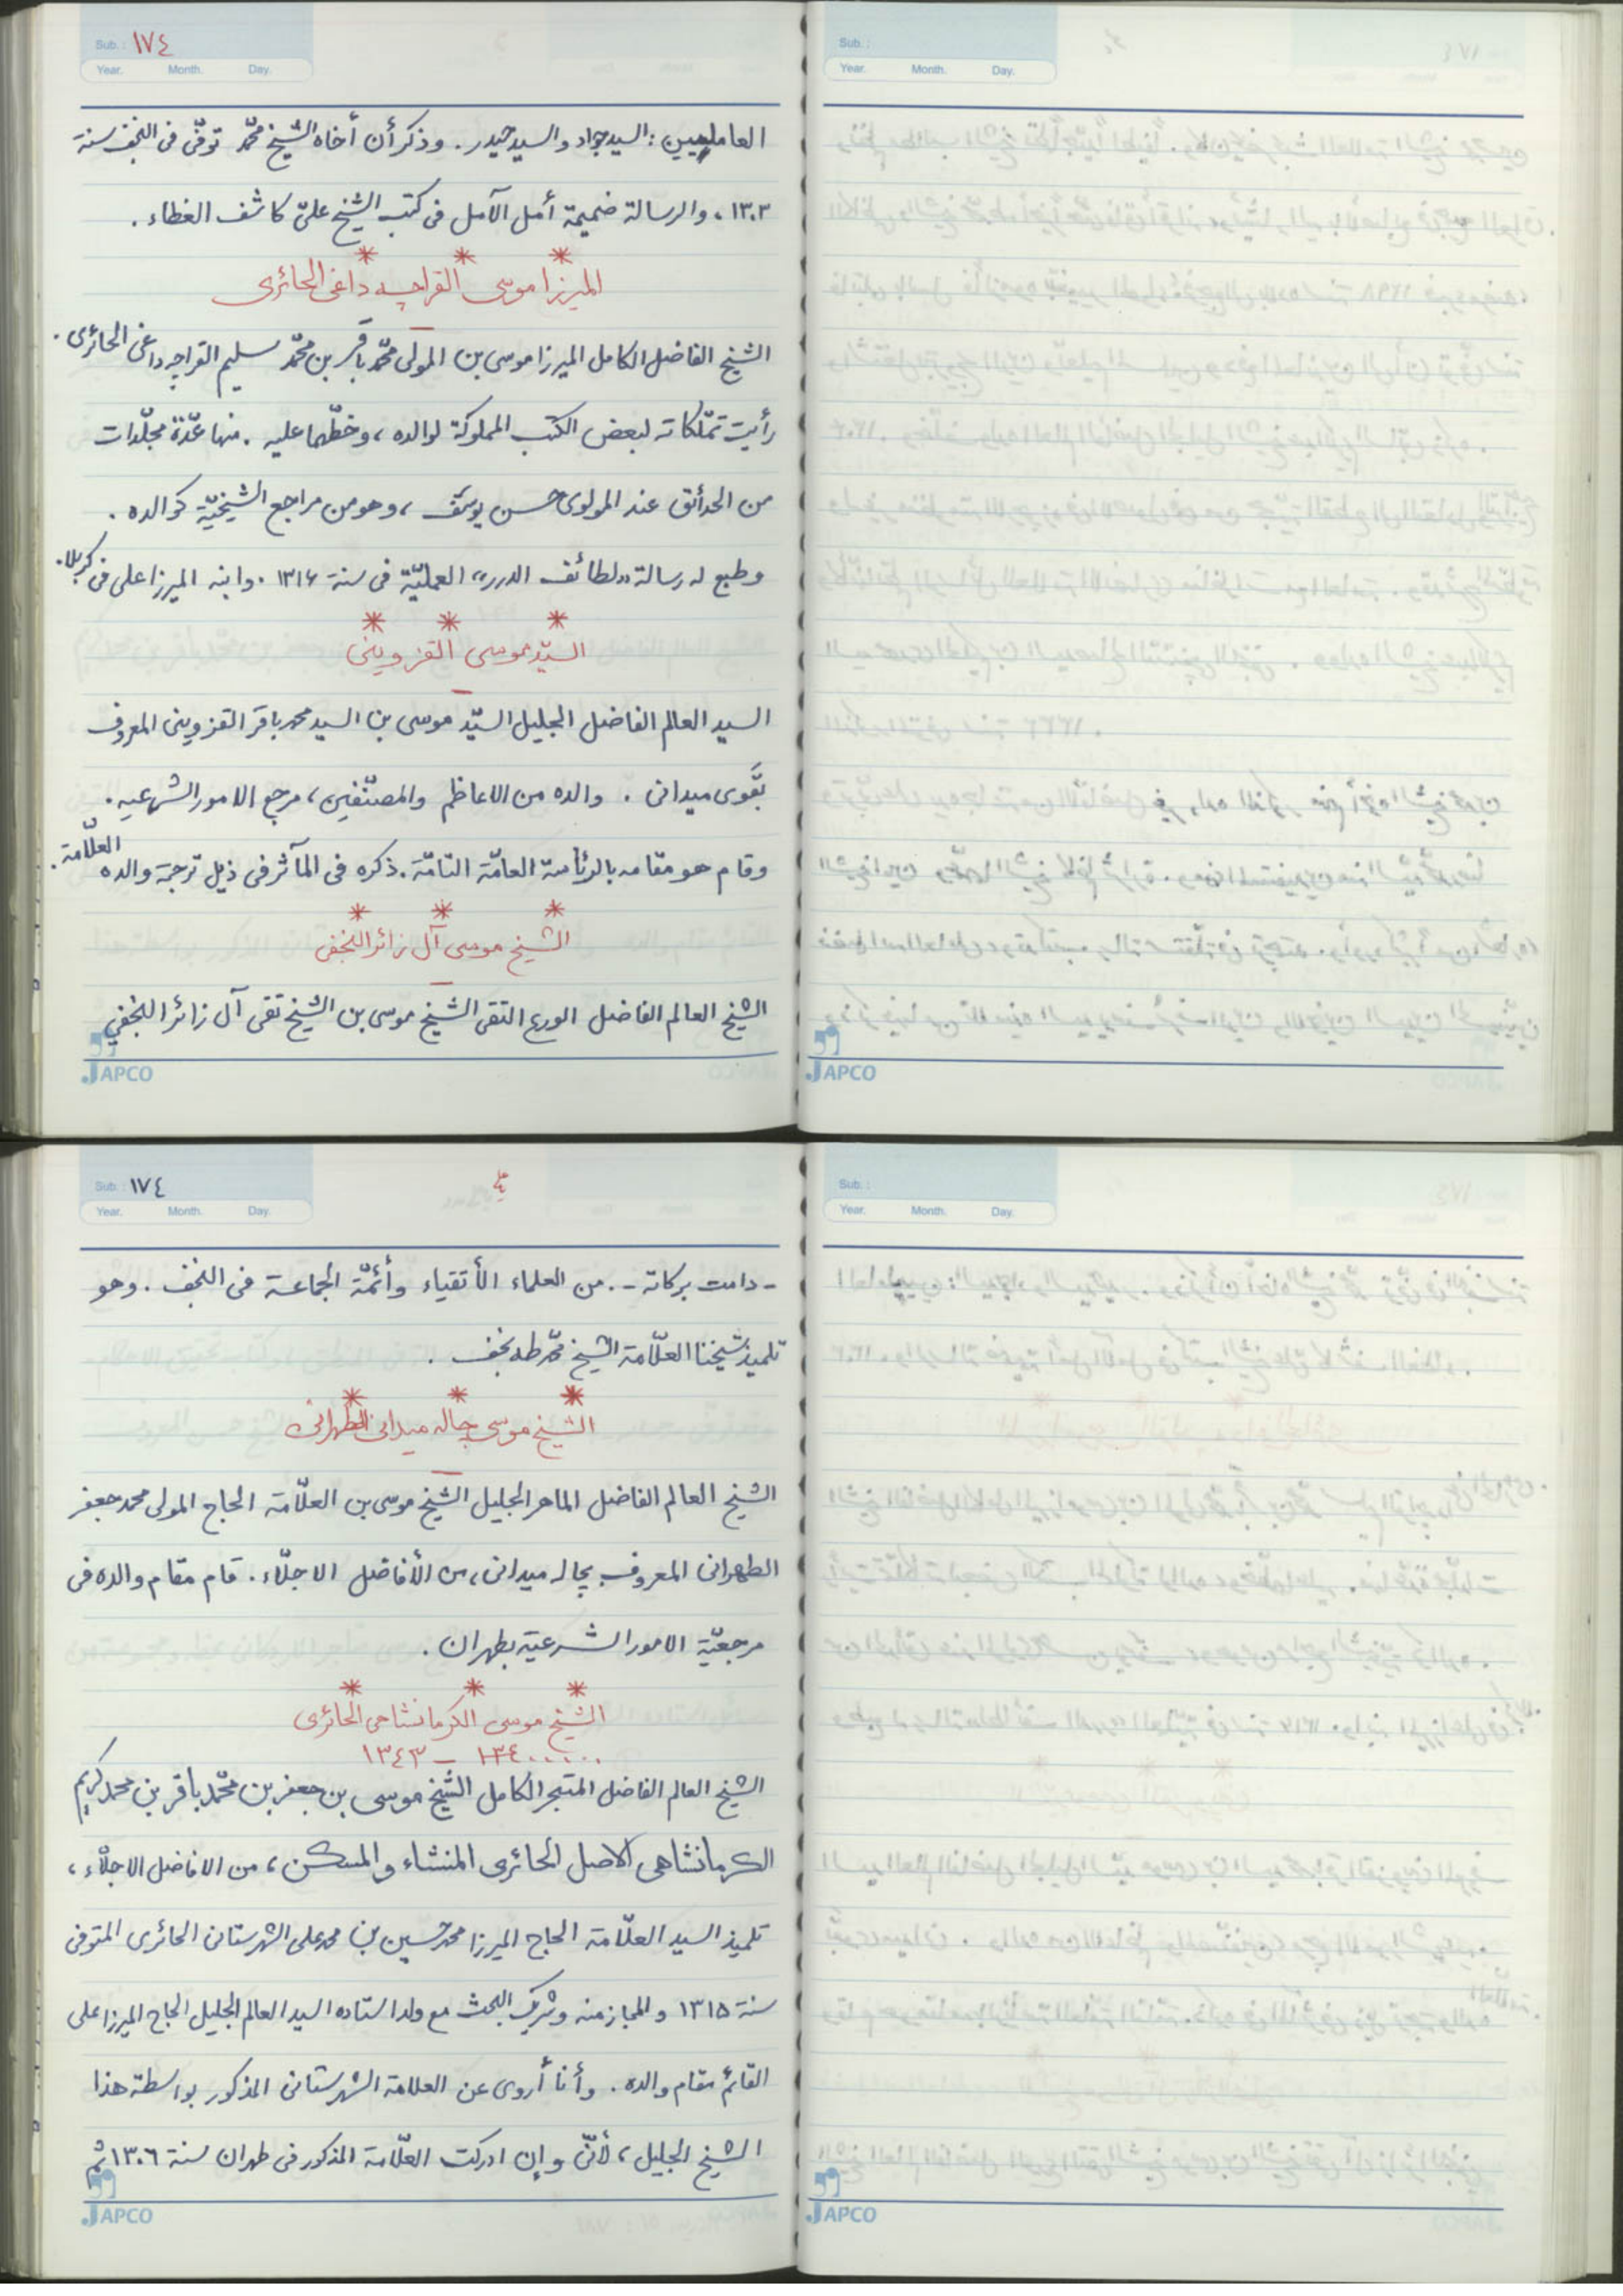 Sub.: ١٧٤
Year. Month. Day.
العامليين : السيد جواد والسيد حيدر . وذكر أن أخاه الشيخ محمّد توفّى فى النجف سنة
١٣٠٣ ، والرسالة ضميمة أمل الآمل فى كتب الشيخ علىّ كاشف الغطاء .
* * *
الميرزا موسى القراجه داغى الحائرى
الشيخ الفاضل الكامل الميرزا موسى بن المولى محمّد باقر بن محمّد سليم القراجه داغى الحائرى .
رأيت تملّكاته لبعض الكتب المملوكة لوالده ، وخطّهما عليه . منها عدّة مجلّدات
من الحدائق عند المولوى حسن يوسف ، وهو من مراجع الشيخيّة كوالده .
وطبع له رسالة «لطائف الدرر» العمليّة فى سنة ١٣١۶ . وابنه الميرزا على فى كربلا .
* * *
السيّد موسى القزوينى
السيد العالم الفاضل الجليل السيّد موسى بن السيد محمد باقر القزوينى المعروف
بقَوى ميدانى . والده من الاعاظم والمصنّفين ، مرجع الامور الشرعيه .
وقام هو مقامه بالرئاسة العامّة التامّة . ذكره فى المآثر فى ذيل ترجمة والده العلّامة .
* * *
الشيخ موسى آل زائر النجفى
الشيخ العالم الفاضل الورع التقى الشيخ موسى بن الشيخ تقى آل زائر النجفي
JAPCO
Sub.:
Year. Month. Day.
JAPCO
Sub.: ١٧٤
Year. Month. Day.
- دامت بركاته - . من العلماء الأتقياء وأئمّة الجماعة فى النجف . وهو
تلميذ شيخنا العلّامة الشيخ محمّد طه نجف .
* * *
الشيخ موسى چاله ميدانى الطهرانى
الشيخ العالم الفاضل الماهر الجليل الشيخ موسى بن العلّامة الحاج المولى محمد جعفر
الطهرانى المعروف بچاله ميدانى ، من الأفاضل الاجلّاء . قام مقام والده فى
مرجعيّة الامور الشرعية بطهران .
* * *
الشيخ موسى الكرمانشاهى الحائرى
...... ١٣٤٠ – ١٣٤٣
الشيخ العالم الفاضل المتبحر الكامل الشيخ موسى بن جعفر بن محمّد باقر بن محمد كريم
الكرمانشاهى الاصل الحائرى المنشاء والمسكن ، من الافاضل الاجلّاء ،
تلميذ السيد العلّامة الحاج الميرزا محمد حسين بن محمد على الشهرستانى الحائرى المتوفى
سنة ١٣١۵ والمجاز منه وشريك البحث مع ولد استاده السيد العالم الجليل الحاج الميرزا على
القائم مقام والده . وأنا أروى عن العلامة الشهرستانى المذكور بواسطة هذا
الشيخ الجليل ، لأنّى وإن ادركت العلّامة المذكور فى طهران سنة ١٣٠٦ ثم
JAPCO
Sub.:
Year. Month. Day.
JAPCO